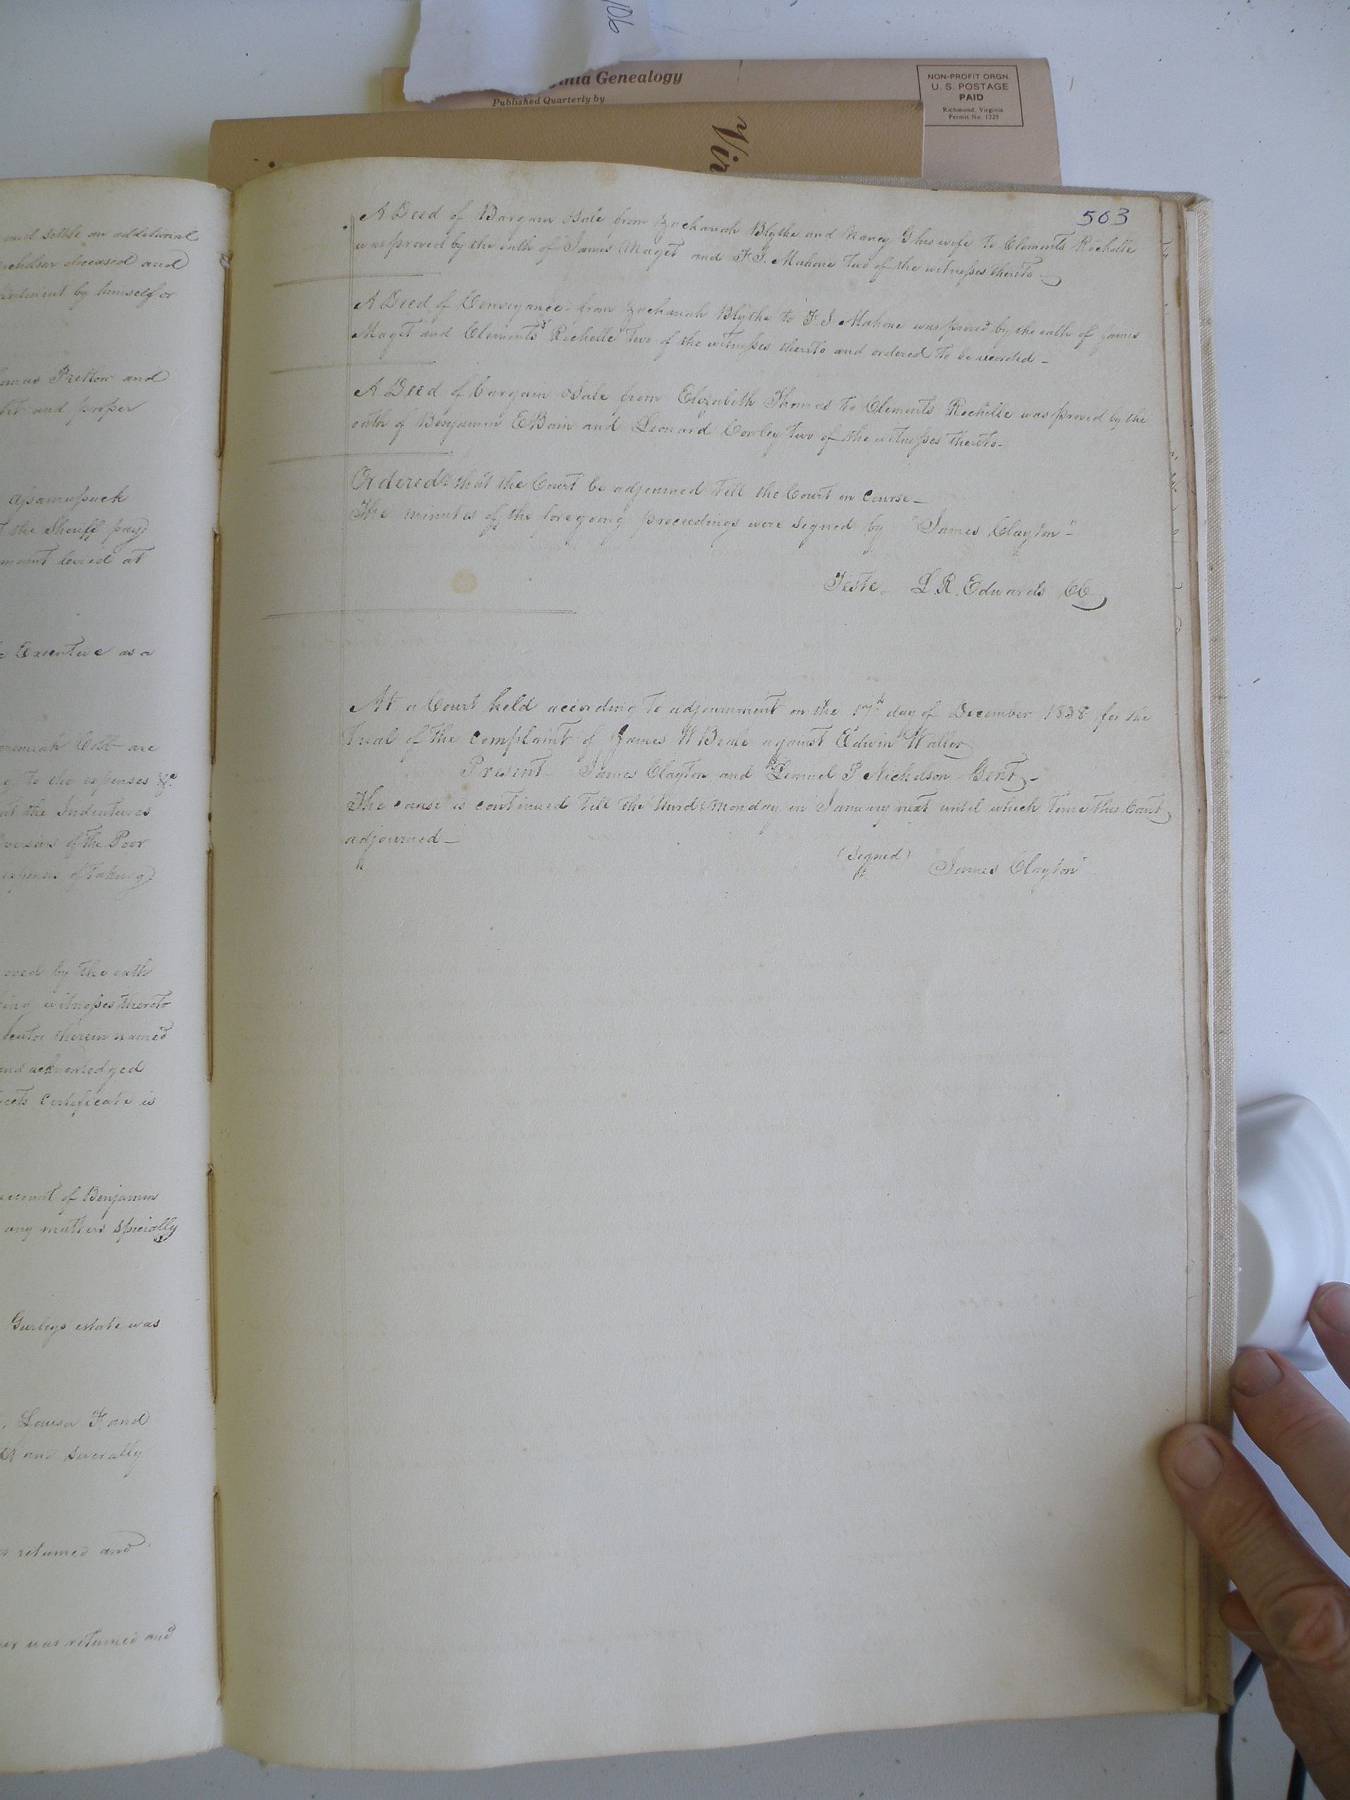 106
Virginia Genealogy
Published Quarterly by
NON-PROFIT ORGN
U. S. POSTAGE
PAID
Richmond, Virginia
Permit No. 1225
Vir
and settle an additional
deceased and
by himself or
Pretlow and
and proper
the Sheriff pay
amount levied at
Executive as a
are
to the expenses &c
the Indentures
Overseers of the Poor
expenses of taking
proved by the oath
witnesses thereto
therein named
and acknowledged
certificate is
account of Benjamin
any matters specially
Gurleys estate was
Louisa F. and
and severally
returned and
was returned and
503
A Deed of Bargain Sale from Zachariah Blythe and Nancy G his wife to Clements Rochelle
was proved by the oath of James Maget and F. J. Mahone two of the witnesses thereto
A Deed of Conveyance from Zachariah Blythe to F. J. Mahone was proved by the oath of James
Maget and Clements Rochelle two of the witnesses thereto and ordered to be recorded –
A Deed of Bargain Sale from Elizabeth Thomas to Clements Rochelle was proved by the
oath of Benjamin E Bain and Leonard two of the witnesses thereto –
Ordered that the Court be adjourned till the Court in Course –
The minutes of the foregoing proceedings were signed by "James Clayton" –
Teste. L. R. Edwards CC
At a Court held according to adjournment on the 17th day of December 1838 for the
trial of the complaint of James W Beale against Edwin Waller
Present James Clayton and Lemuel P Nicholson Gent. –
The cause is continued till the third Monday in January next until which time this Court
adjourned –
(Signed)
"James Clayton"